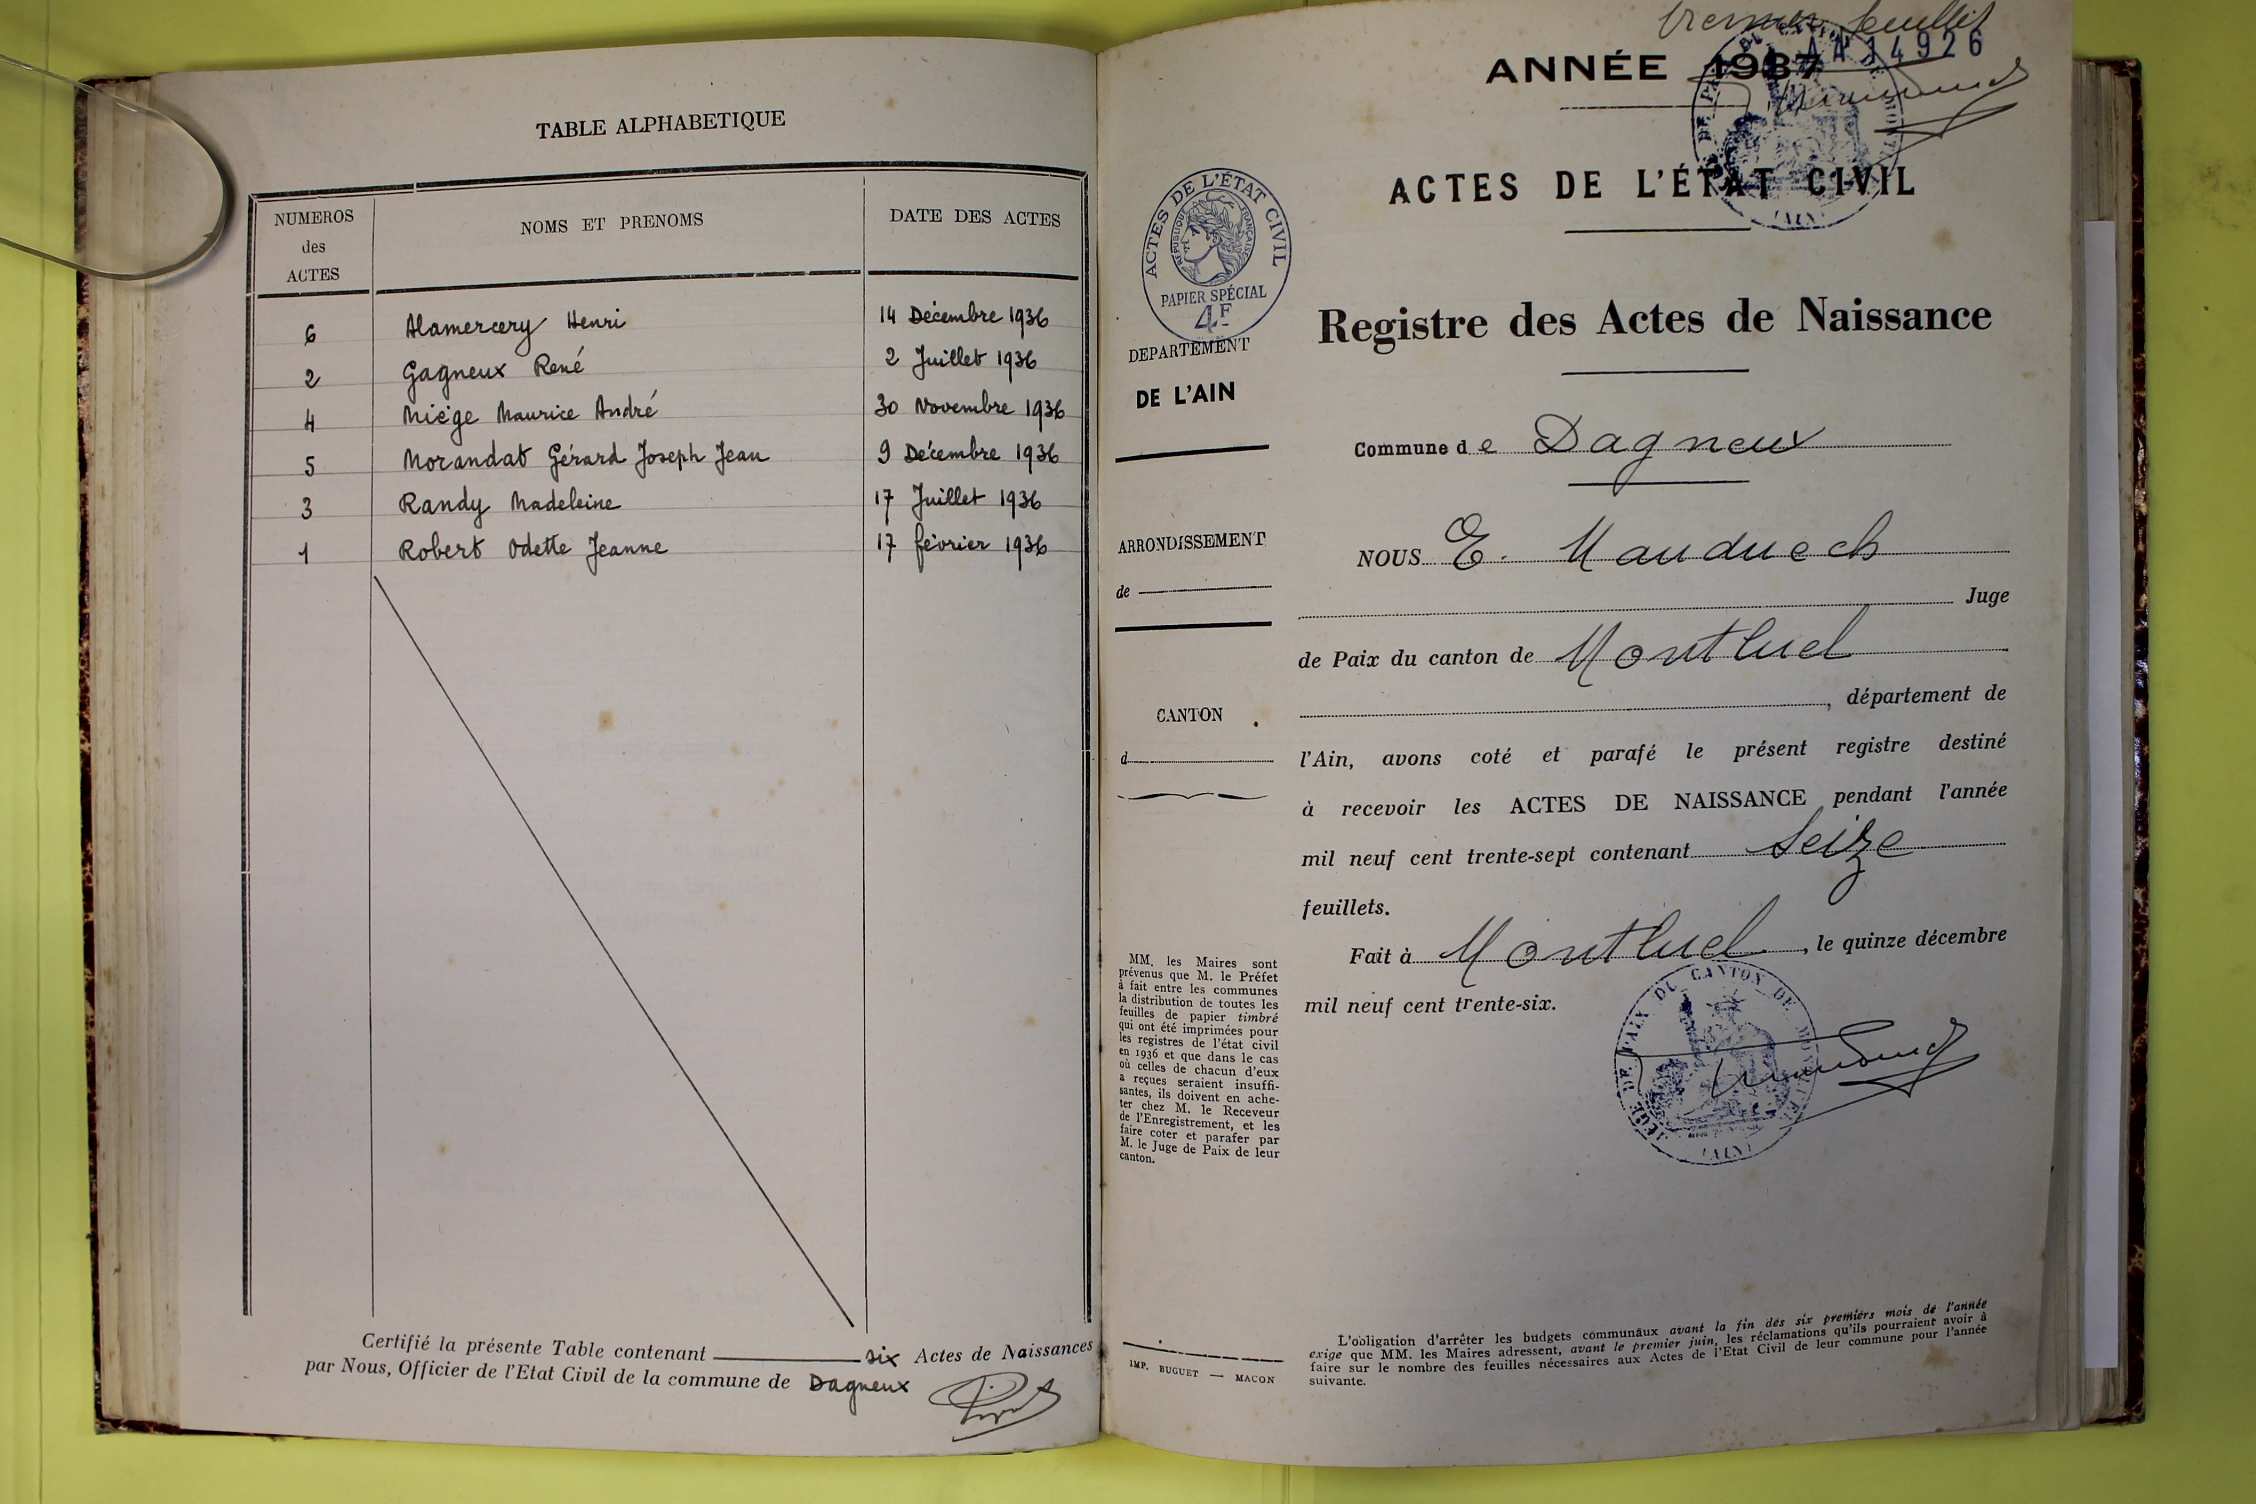 TABLE ALPHABETIQUE
NUMEROS des ACTES NOMS ET PRENOMS DATE DES ACTES
6 Alamercery Henri 14 Décembre 1936
2 Gagneux René 2 Juillet 1936
4 Miège Maurice André 30 Novembre 1936
5 Morandat Gérard Joseph Jean 9 Décembre 1936
3 Randy Madeleine 17 Juillet 1936
1 Robert Odette Jeanne 17 février 1936
Certifié la présente Table contenant six Actes de Naissances
par Nous, Officier de l'Etat Civil de la commune de Dagneux
premier feuillet
AA14926
ANNÉE 1937
ACTES DE L'ÉTAT CIVIL
ACTES DE L'ÉTAT CIVIL
RÉPUBLIQUE FRANÇAISE
PAPIER SPÉCIAL
4F
DEPARTEMENT
DE L'AIN
ARRONDISSEMENT
de
CANTON
d
MM. les Maires sont
prévenus que M. le Préfet
à fait entre les communes
la distribution de toutes les
feuilles de papier timbré
qui ont été imprimées pour
les registres de l'état civil
en 1936 et que dans le cas
où celles de chacun d'eux
a reçues seraient insuffi-
santes, ils doivent en ache-
ter chez M. le Receveur
de l'Enregistrement, et les
faire coter et parafer par
M. le Juge de Paix de leur
canton.
IMP. BUGUET — MACON
Registre des Actes de Naissance
Commune de Dagneux
NOUS E. Mauduech
Juge
de Paix du canton de Montluel
, département de
l'Ain, avons coté et parafé le présent registre destiné
à recevoir les ACTES DE NAISSANCE pendant l'année
mil neuf cent trente-sept contenant Seize
feuillets.
Fait à Montluel, le quinze décembre
mil neuf cent trente-six.
JUGE DE PAIX DU CANTON DE MONTLUEL
(AIN)
L'obligation d'arrêter les budgets communaux avant la fin des six premiers mois de l'année
exige que MM. les Maires adressent, avant le premier juin, les réclamations qu'ils pourraient avoir à
faire sur le nombre des feuilles nécessaires aux Actes de l'Etat Civil de leur commune pour l'année
suivante.